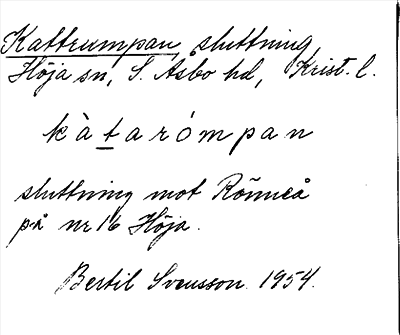 Kattrumpan, sluttning,
Höja sn, S. Åsbo hd, Krist. l.
kàtarómpan
sluttning mot Rönneå
på nr 16 Höja.
Bertil Svensson 1954.